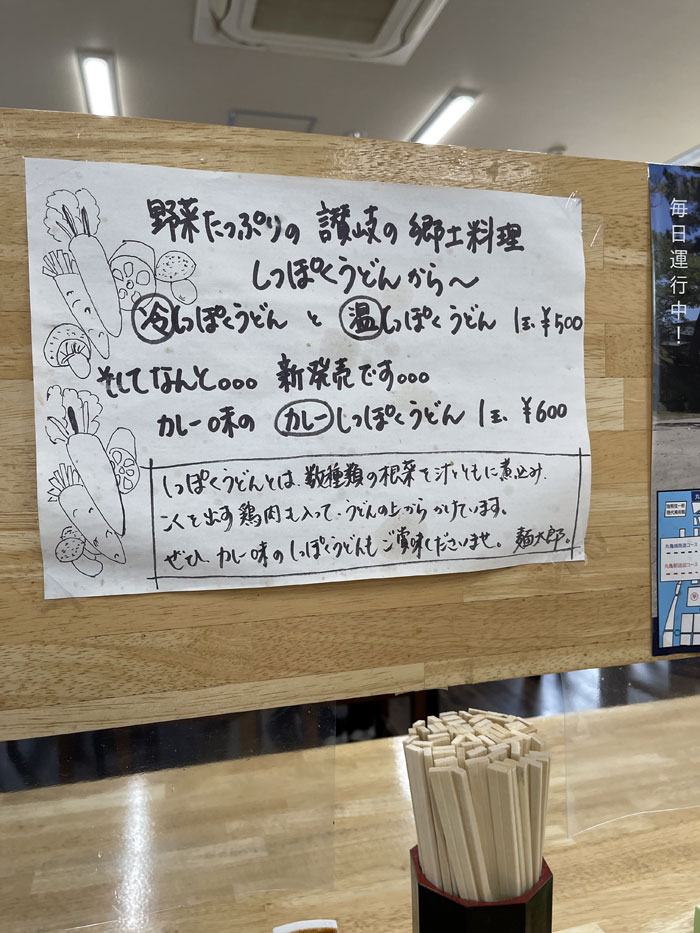 野菜たっぷりの 讃岐の 郷土料理
しっぽくうどんから〜
冷しっぽくうどん と 温しっぽくうどん 1玉¥500
そしてなんと。。。 新発売です。。。
カレー味の カレーしっぽくうどん 1玉、¥600
しっぽくうどんとは、数種類の根菜を汁とともに煮込み、
コクを出す鶏肉も入って、うどんの上からかけています。
ぜひ、カレー味のしっぽくうどんもご賞味くださいませ。 麺太郎。
毎日運行中!